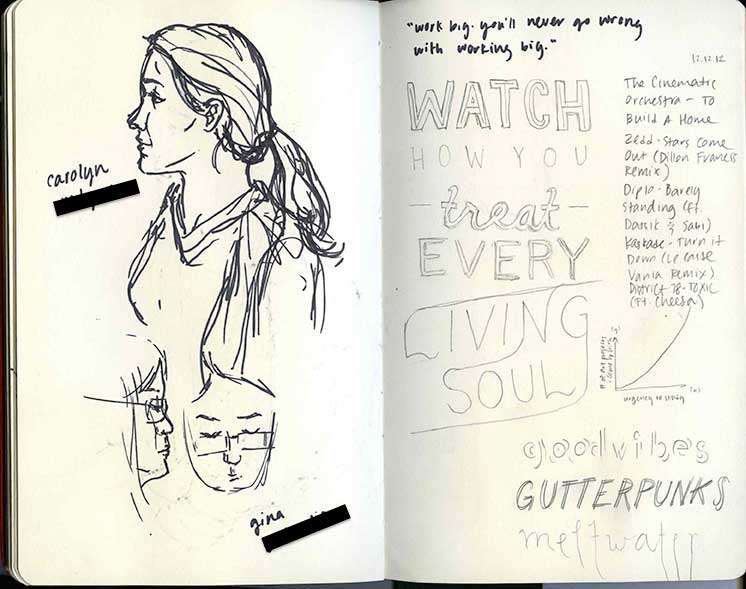 carolyn
gina
"work big. you'll never go wrong
with working big."
12.12.12
WATCH
HOW YOU
- treat -
EVERY
LIVING
SOUL
The Cinematic
Orchestra - To
Build A Home
Zedd - Stars Come
Out (Dillon Francis
Remix)
Diplo - Barely
Standing (ft.
Datsik & Sabi)
Kaskade - Turn it
Down (Le Castle
Vania Remix)
District 78 - TOXIC
(Ft. Cheesa)
(y)
(x)
urgency to study
goodvibes
GUTTERPUNKS
meltwater